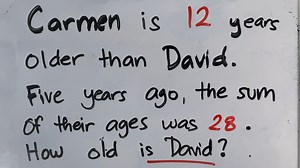 Carmen is 12 years
older than David.
Five years ago, the sum
of their ages was 28.
How old is David?